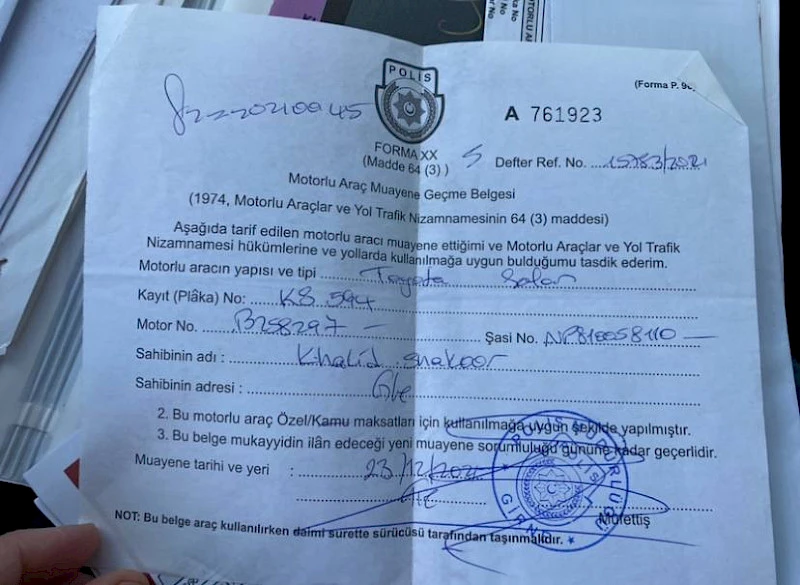 POLİS
(Forma P. 9
A 761923
FORMA XX
(Madde 64 (3) )
Defter Ref. No. 15783/2021
Motorlu Araç Muayene Geçme Belgesi
(1974, Motorlu Araçlar ve Yol Trafik Nizamnamesinin 64 (3) maddesi)
Aşağıda tarif edilen motorlu aracı muayene ettiğimi ve Motorlu Araçlar ve Yol Trafik
Nizamnamesi hükümlerine ve yollarda kullanılmağa uygun bulduğumu tasdik ederim.
Motorlu aracın yapısı ve tipi Toyota Salon
Kayıt (Plâka) No: KS 594
Motor No. B258297 - Şasi No. NP810058110 -
Sahibinin adı : Khalid Shakoor
Sahibinin adresi : G/e
2. Bu motorlu araç Özel/Kamu maksatları için kullanılmağa uygun şekilde yapılmıştır.
3. Bu belge mukayyidin ilân edeceği yeni muayene sorumluluğu gününe kadar geçerlidir.
Muayene tarihi ve yeri : 23/12/2021
Müfettiş
NOT: Bu belge araç kullanılırken daimi surette sürücüsü tarafından taşınmalıdır.